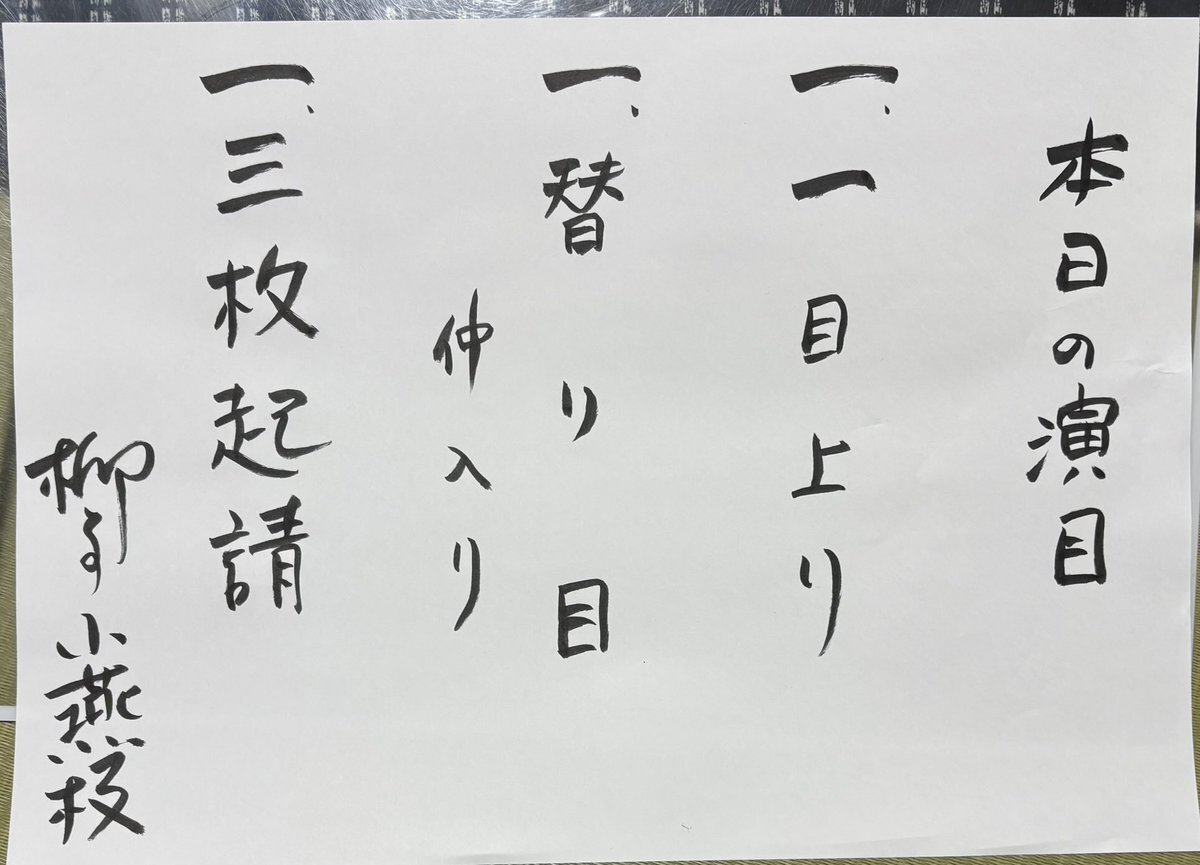 本日の演目
一、一目上り
一、替り目
仲入り
一、三枚起請
柳亭小燕枝